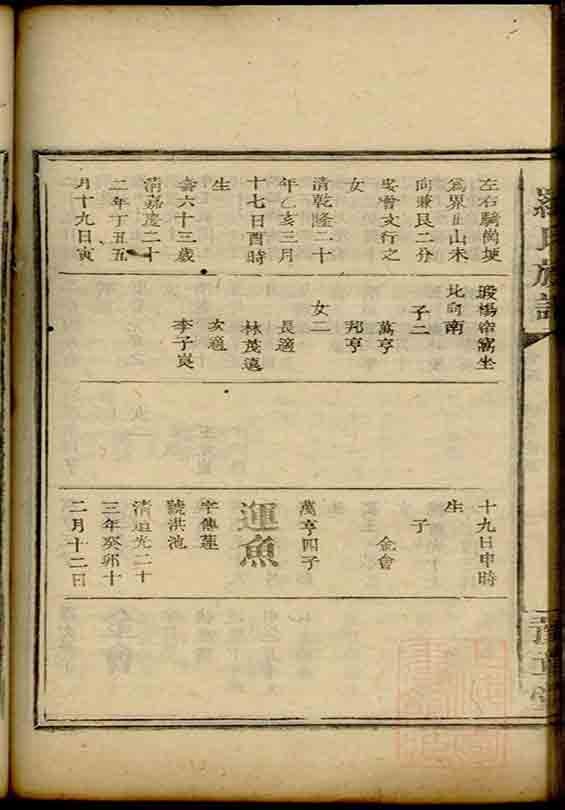 左右騎崗埂
為界止山未
向兼艮二分
安曾文行之
女
清乾隆二十
年乙亥三月
十七日酉時
生
壽六十三歲
清嘉慶二十
二年丁丑五
月十九日寅
坐
北向南
子二
萬亨
邦亨
女二
長適
林茂遠
次適
李子
十九日申時
生
子
金會
萬亨四子
運魚
字傳蓮
號洪池
清道光二十
三年癸卯十
二月十二日
羅氏族譜